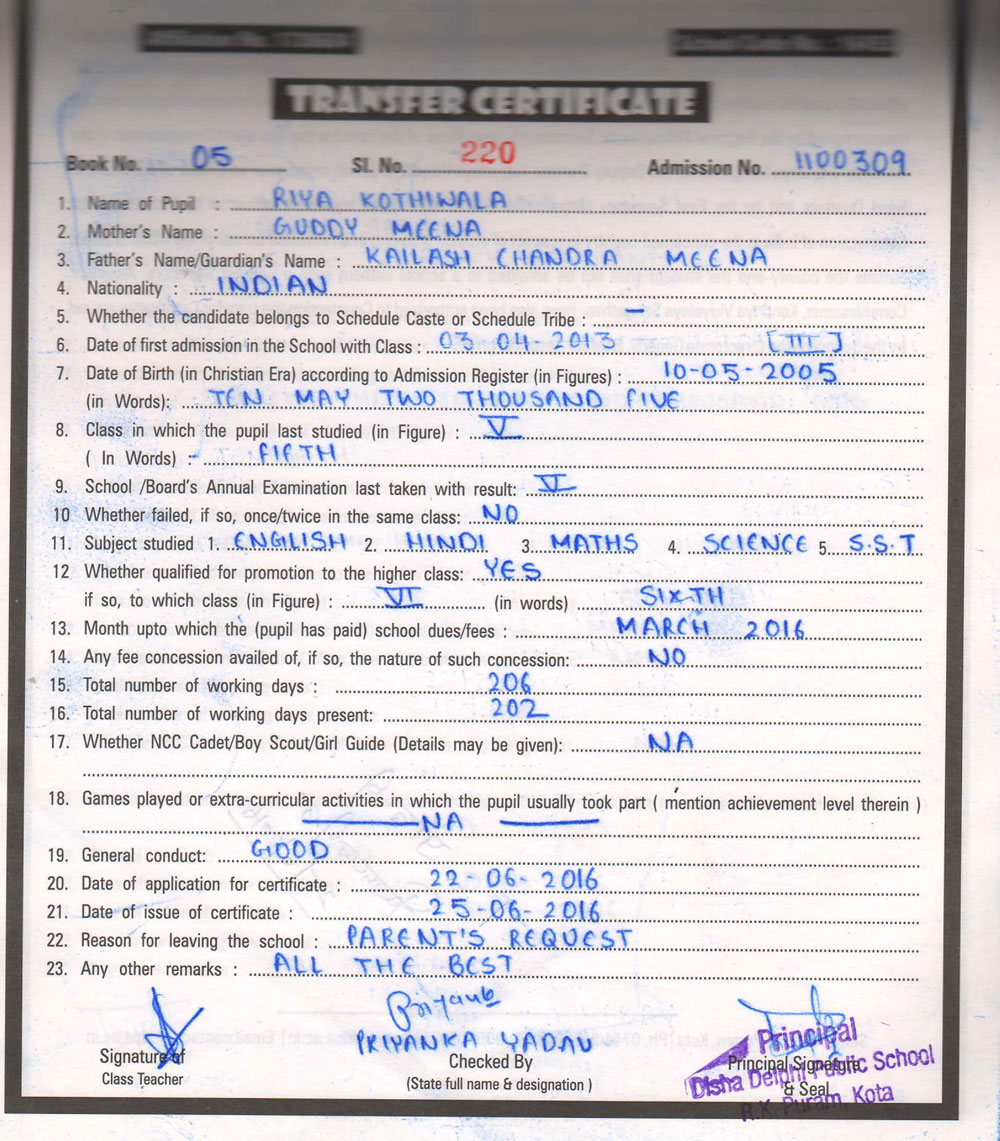 TRANSFER CERTIFICATE
Book No. 05 Sl. No. 220 Admission No. 1100309
1. Name of Pupil : RIYA KOTHIWALA
2. Mother's Name : GUDDY MEENA
3. Father's Name/Guardian's Name : KAILASH CHANDRA MEENA
4. Nationality : INDIAN
5. Whether the candidate belongs to Schedule Caste or Schedule Tribe : —
6. Date of first admission in the School with Class : 03-04-2013 [III]
7. Date of Birth (in Christian Era) according to Admission Register (in Figures) : 10-05-2005
(in Words): TEN MAY TWO THOUSAND FIVE
8. Class in which the pupil last studied (in Figure) : V
( In Words) :- FIFTH
9. School /Board's Annual Examination last taken with result: VI
10 Whether failed, if so, once/twice in the same class: NO
11. Subject studied 1. ENGLISH 2. HINDI 3. MATHS 4. SCIENCE 5. S.S.T
12 Whether qualified for promotion to the higher class: YES
if so, to which class (in Figure) : VI (in words) SIXTH
13. Month upto which the (pupil has paid) school dues/fees : MARCH 2016
14. Any fee concession availed of, if so, the nature of such concession: NO
15. Total number of working days : 206
16. Total number of working days present: 202
17. Whether NCC Cadet/Boy Scout/Girl Guide (Details may be given): NA
18. Games played or extra-curricular activities in which the pupil usually took part ( mention achievement level therein )
NA
19. General conduct: GOOD
20. Date of application for certificate : 22-06-2016
21. Date of issue of certificate : 25-06-2016
22. Reason for leaving the school : PARENT'S REQUEST
23. Any other remarks : ALL THE BEST
Priyanka
PRIYANKA YADAV
Signature of
Class Teacher
Checked By
(State full name & designation )
Principal
Principal Signature
Disha Delphi Public School
& Seal
R.K. Puram, Kota